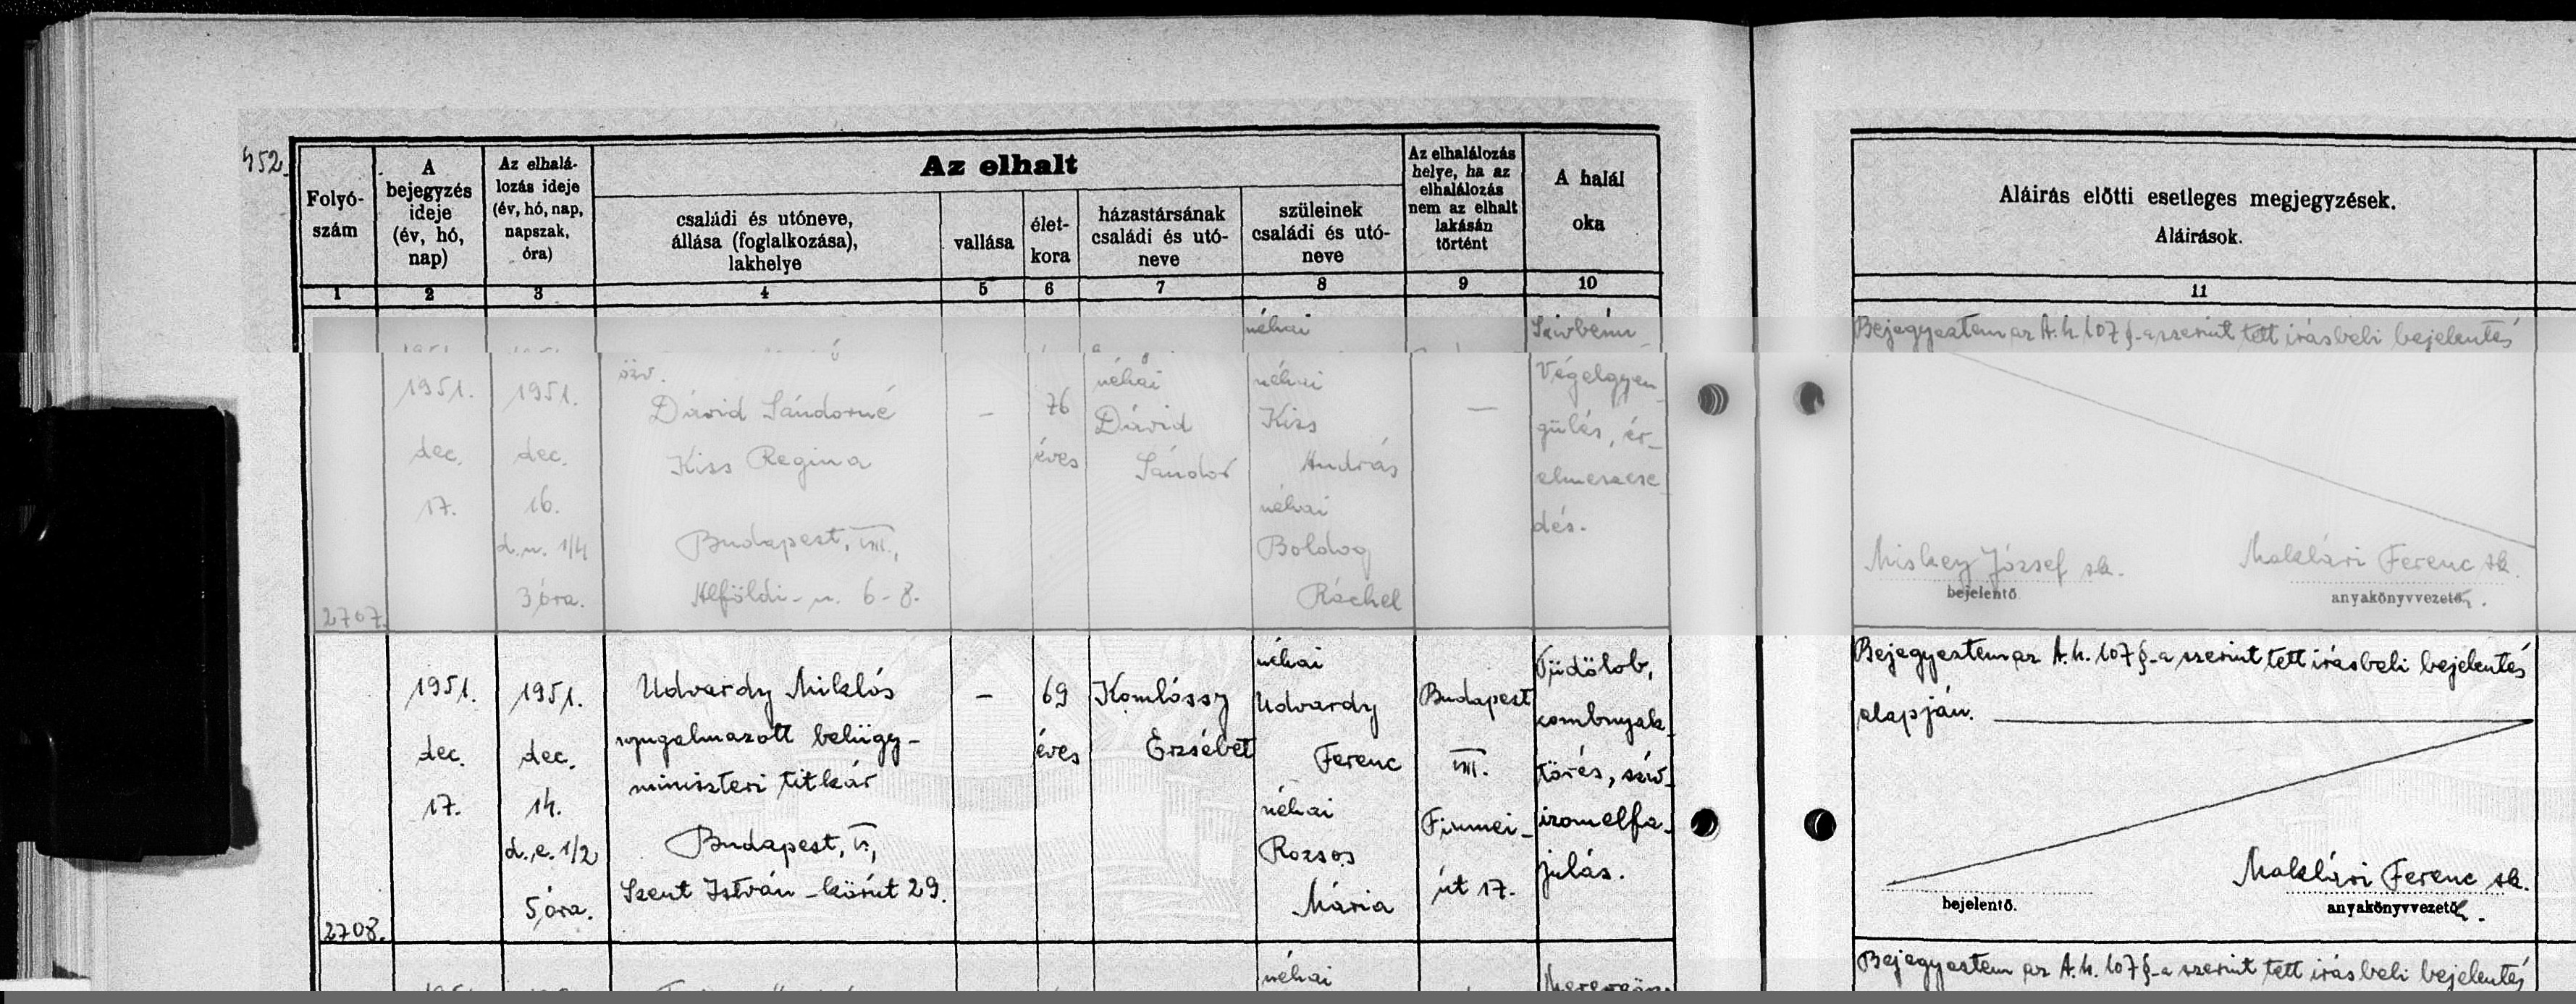 452.
Folyó-
szám
A
bejegyzés
ideje
(év, hó,
nap)
Az elhalá-
lozás ideje
(év, hó, nap,
napszak,
óra)
Az elhalt
családi és utóneve,
állása (foglalkozása),
lakhelye
vallása
élet-
kora
házastársának
családi és utó-
neve
szüleinek
családi és utó-
neve
Az elhalálozás
helye, ha az
elhalálozás
nem az elhalt
lakásán
történt
A halál
oka
Aláirás előtti esetleges megjegyzések.
Aláirások.
1 2 3 4 5 6 7 8 9 10 11
néhai
Bejegyeztem az A. h. 107 §-a szerint tett irásbeli bejelentés
2707.
1951.
dec.
17.
1951.
dec.
16.
d. u. 1/4
3 óra.
özv.
Dávid Sándorné
Kiss Regina
Budapest, VIII.,
Alföldi-u. 6-8.
—
76
éves
néhai
Dávid
Sándor
néhai
Kiss
András
néhai
Boldog
Ráchel
—
Végelgyen-
gülés, ér-
elmeszese-
dés.
Miskey József sk.
bejelentő
Maklári Ferenc sk.
anyakönyvvezető h.
2708.
1951.
dec.
17.
1951.
dec.
14.
d. e. 1/2
5 óra.
Udvardy Miklós
nyugalmazott belügy-
miniszteri titkár
Budapest, V.,
Szent István-körút 29.
—
69
éves
Komlóssy
Erzsébet
néhai
Udvardy
Ferenc
néhai
Rozsos
Mária
Budapest
VIII.
Fiumei-
út 17.
Tüdőlob,
combnyak-
törés, szív-
izomelfa-
julás.
Bejegyeztem az A. h. 107 §-a szerint tett irásbeli bejelentés
alapján.
bejelentő.
Maklári Ferenc sk.
anyakönyvvezető h.
néhai
Bejegyeztem az A. h. 107 §-a szerint tett irásbeli bejelentés